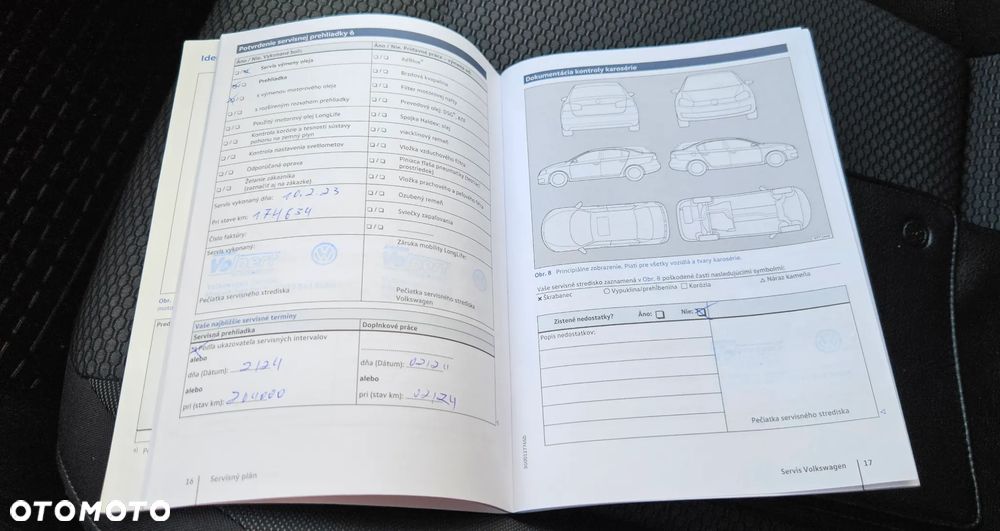 Ide
Potvrdenie servisnej prehliadky 6
Áno / Nie. Vykonané boli:
Áno / Nie. Prídavné práce
Servis výmeny oleja
AdBlue®
Prehliadka
Brzdová kvapalina
s výmenou motorového oleja
Filter motorovej nafty
s rozšíreným rozsahom prehliadky
Prevodový olej: DSG®
Použitý motorový olej LongLife
Spojka Haldex: olej
Kontrola korózie a tesnosti sústavy
pohonu na zemný plyn
viacklinový remeň
Kontrola nastavenia svetlometov
Vložka vzduchového filtra
Odporúčaná oprava
Plniaca fľaša pneumatík (tesniaci
prostriedok)
Želanie zákazníka
(zaznačiť aj na zákazke)
Vložka prachového a peľového filtra
Servis vykonaný dňa: 16.2.23
Ozubený remeň
Pri stave km: 174634
Sviečky zapaľovania
Číslo faktúry:
Servis vykonaný:
Záruka mobility LongLife:
Pečiatka servisného strediska
Pečiatka servisného strediska
Volkswagen
Vaše najbližšie servisné termíny
Servisná prehliadka
Doplnkové práce
Podľa ukazovateľa servisných intervalov
alebo
dňa (Dátum): 2124
dňa (Dátum):
alebo
alebo
pri (stav km): 204000
pri (stav km): 02124
16 Servisný plán
Dokumentácia kontroly karosérie
Obr. 8 Principiálne zobrazenie. Platí pre všetky vozidlá a tvary karosérie.
Vaše servisné stredisko zaznamená v Obr. 8 poškodené časti nasledujúcimi symbolmi:
Škrabanec Vypuklina/prehĺbenina Korózia Náraz kameňa
Zistené nedostatky? Áno: Nie:
Popis nedostatkov:
Pečiatka servisného strediska
Servis Volkswagen 17
Obr.
moto
Pred
OTOMOTO